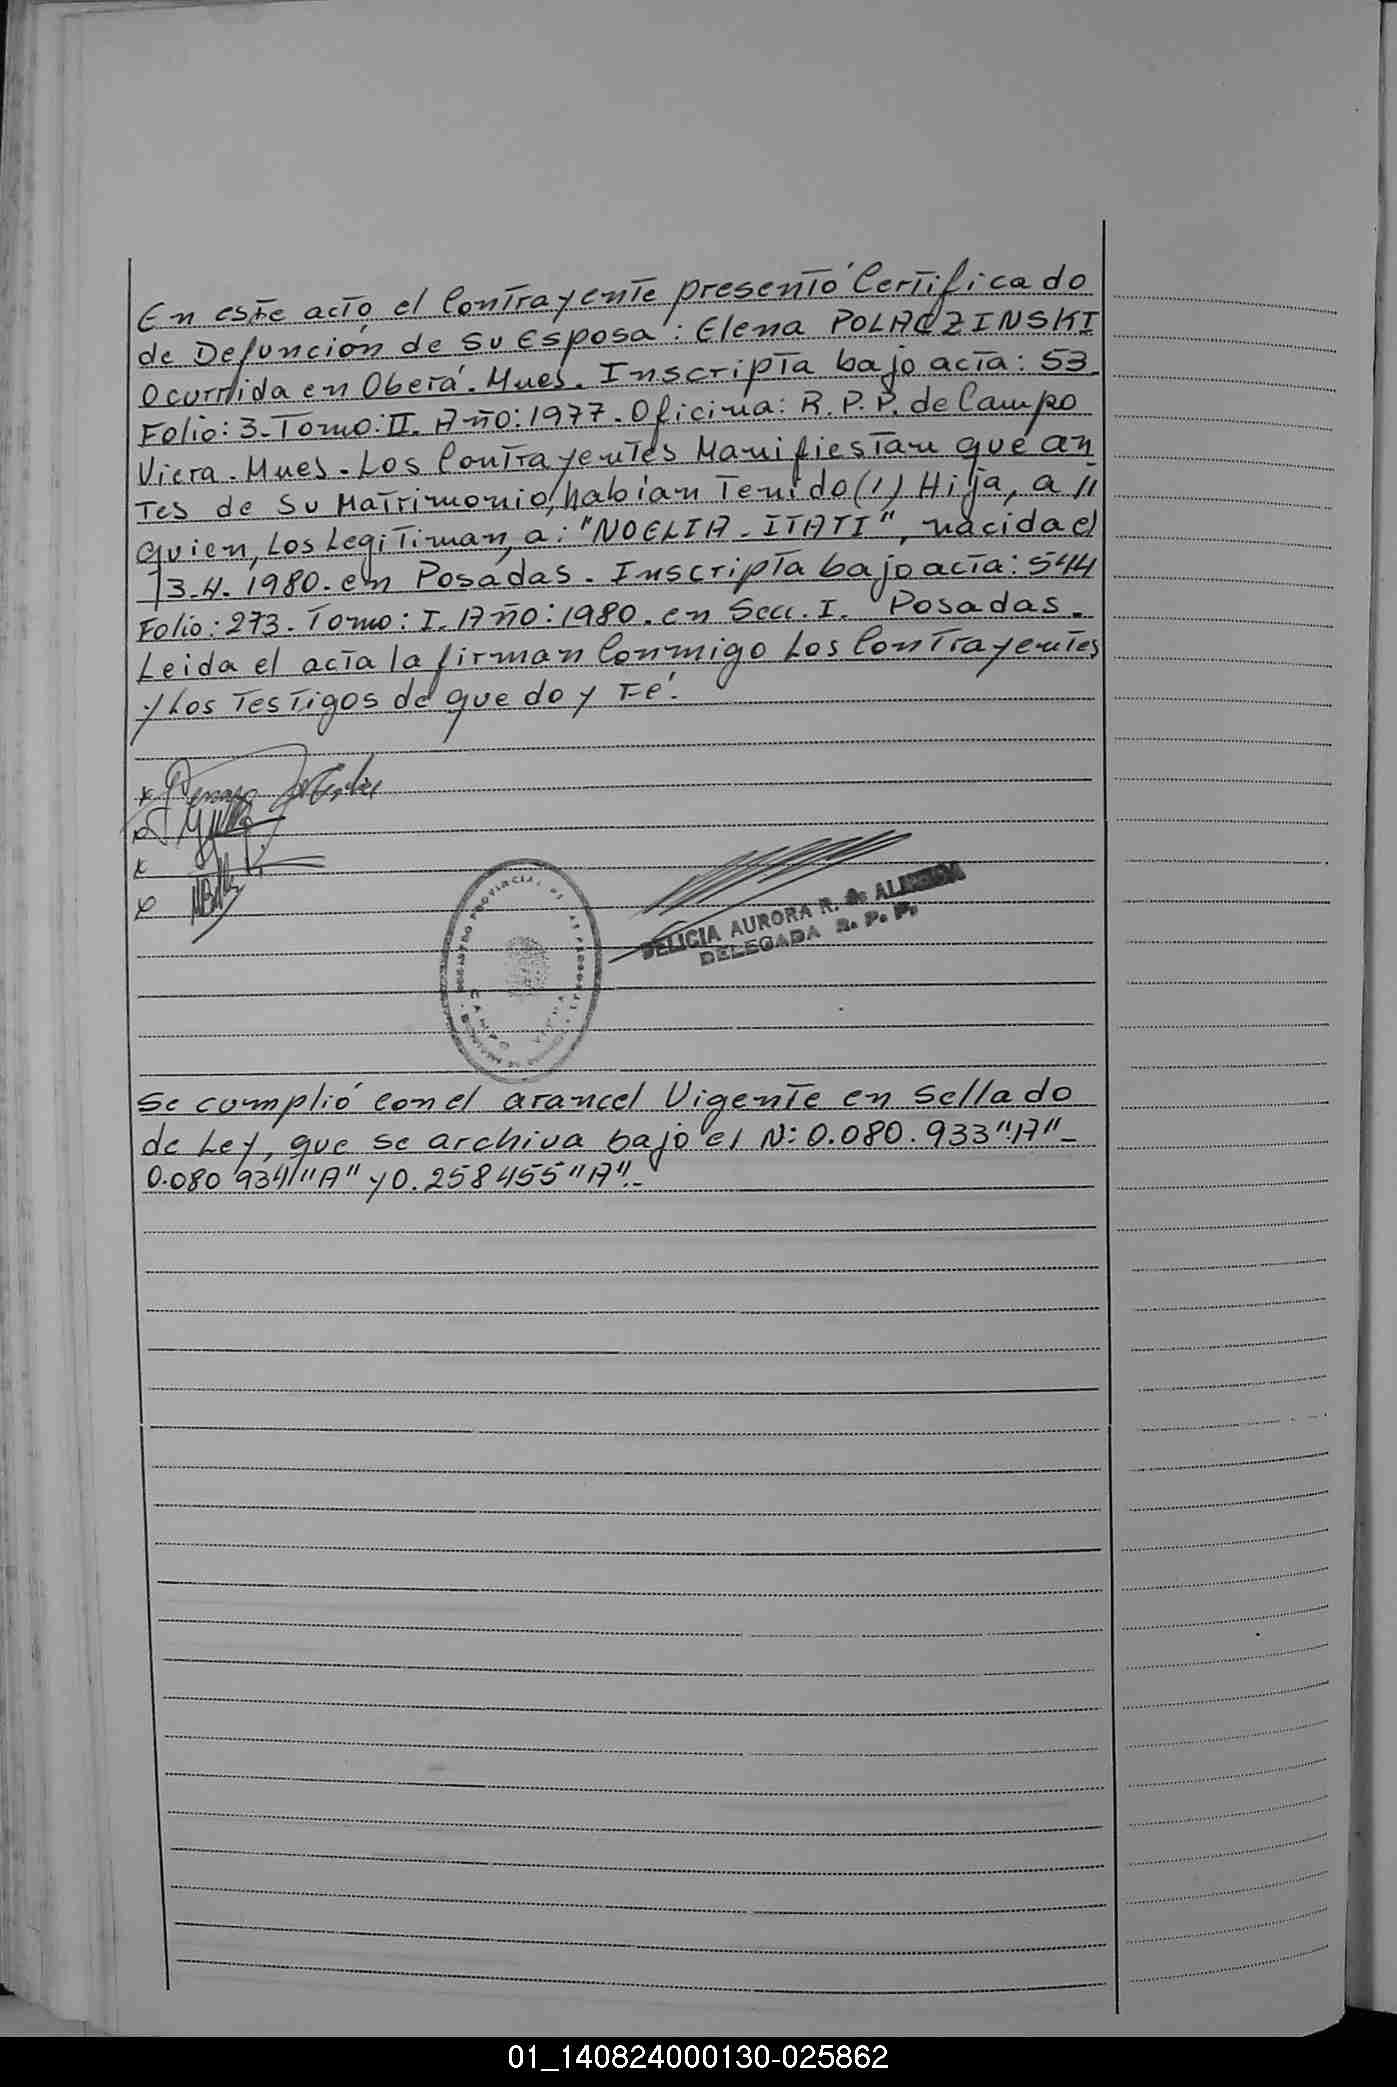 En este acto el Contrayente presentó Certificado
de Defunción de su esposa: Elena POLACZINSKI
Ocurrida en Oberá. Mnes. Inscripta bajo acta: 53.
Folio: 3-Tomo: II. Año: 1977. Oficina: R.P.P. de Campo
Viera. Mnes. Los Contrayentes Manifiestan que an
tes de su Matrimonio, habian Tenido (1) Hija, a //
quien, Los Legitiman, a: "NOELIA-ITATI", nacida el
13-4-1980. en Posadas. Inscripta bajo acta: 544
Folio: 273. Tomo: I. Año: 1980. en Secc. I. Posadas.
Leida el acta la firman Conmigo Los Contrayentes
y Los Testigos de que doy Fé.
REGISTRO PROVINCIAL DE LAS PERSONAS
CAMPO VIERA
DELICIA AURORA R. de ALMEIDA
DELEGADA R. P. P.
Se cumplió con el arancel Vigente en Sellado
de Ley, que se archiva bajo el N: 0.080.933 "A"-
0.080 934 "A" y 0.258455 "A".-
01_140824000130-025862